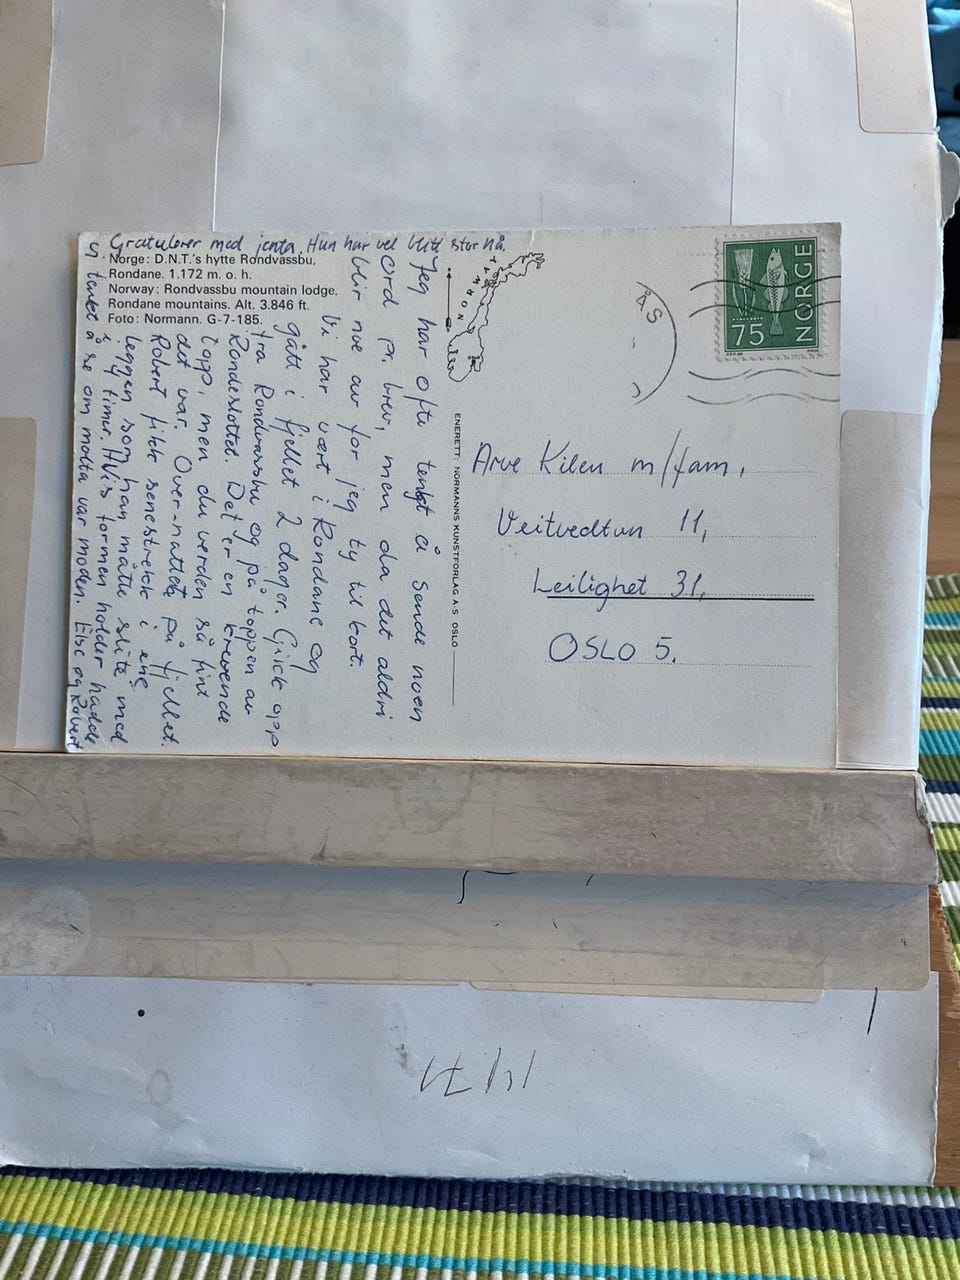 Gratulerer med jenta. Hun har vel blitt stor nå.
Norge: D.N.T.'s hytte Rondvassbu,
Rondane. 1.172 m. o. h.
Norway: Rondvassbu mountain lodge,
Rondane mountains. Alt. 3.846 ft.
Foto: Normann. G-7-185.
Jeg har ofte tenkt å sende noen
ord pr. brev, men da det aldri
blir noe av får jeg ty til kort.
Vi har vært i Rondane og
gått i fjellet 2 dager. Gikk opp
fra Rondvassbu og på toppen av
Rondeslottet. Det er en krevende
topp, men du verden så fint
det var. Over-nattet på fjellet.
Robert fikk senestrekk i ene
leggen som han måtte slite med
i timer. Hvis formen holder hadde
vi tenkt å se om molta var moden. Else og Robert
NORWAY
ENERETT: NORMANNS KUNSTFORLAG A·S OSLO
ÅS
75 NORGE
Arve Kilen m/fam,
Veitvedtun 11,
Leilighet 31,
OSLO 5.